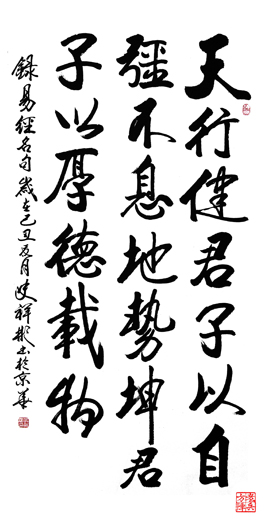 天行健君子以自
彊不息地勢坤君
子以厚德載物
錄易經名句歲在己丑夏月史祥彬書於京華